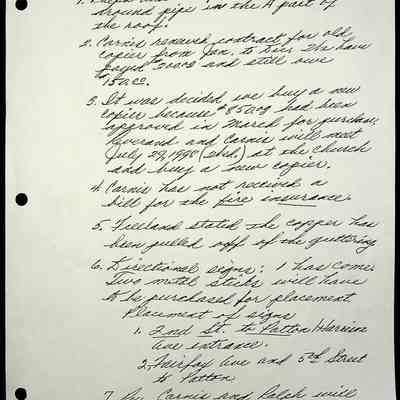 around pipe in the A part of
the roof.
2. Carnis renewed contract for old
copier from Jan. to Nov. She have
and still owe
3. It was decided we buy a new
copier because $850.00 had been
approved in March for purchase.
Reverand and Carnis will meet
July 29, 1998 (Wed.) at the church
and buy a new copier.
4. Carnis has not received a
bill for the fire insurance.
5. Freeland stated the copper has
been pulled off of the guttering
6. Directional signs: 1 has come.
Two metal sticks will have
to be purchased for placement
Placement of signs
1. 2nd St. to Patton Harrison
Ave entrance.
2. Fairfax Ave and 5th Street
to Patton
7. Carnis and Ralph will